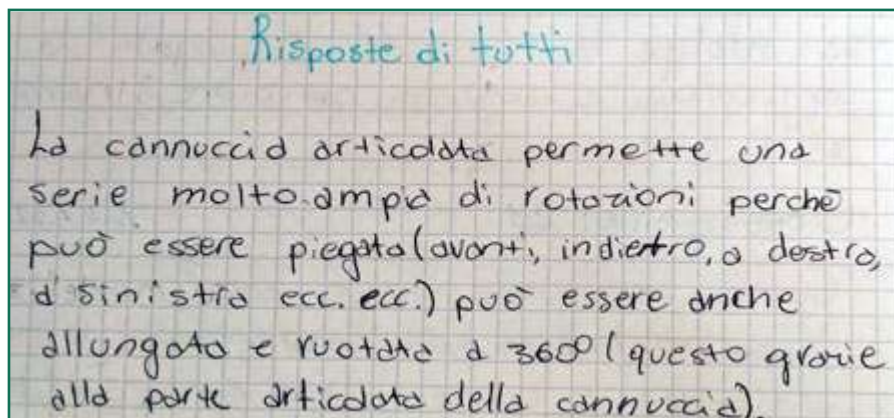 Risposte di tutti
La cannuccia articolata permette una
serie molto ampia di rotazioni perchè
può essere piegata (avanti, indientro, a destra,
a sinistra ecc. ecc.) può essere anche
allungata e ruotata a 360° (questo grazie
alla parte articolata della cannuccia).